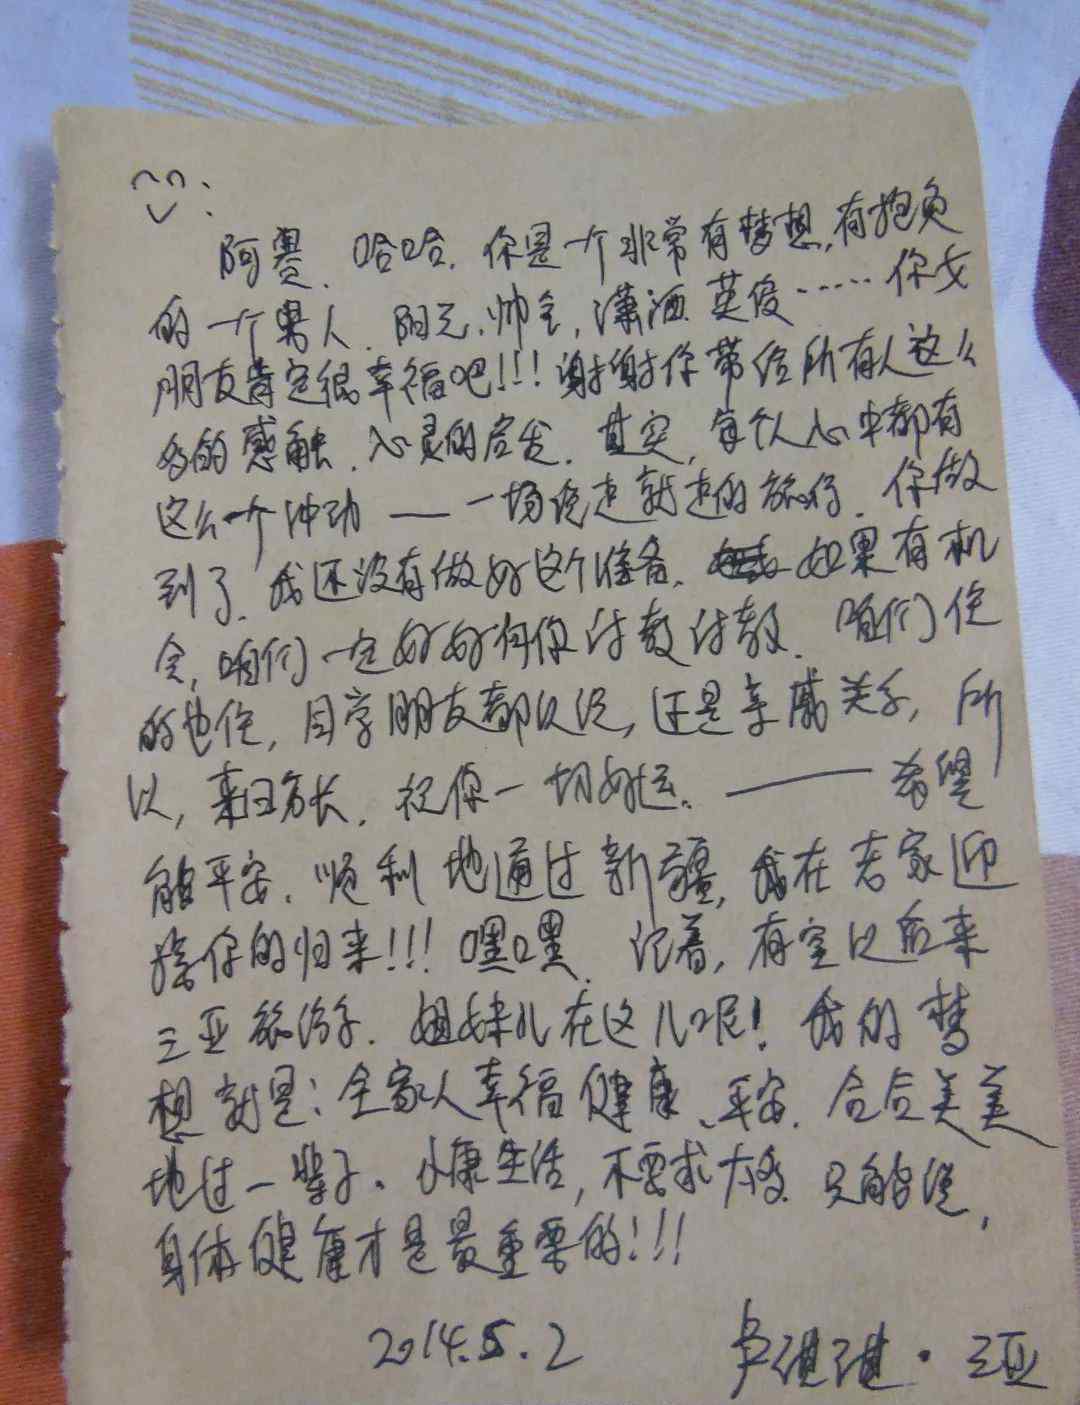 阿赛、哈哈。你是一个非常有梦想,有抱负
的一个男人、阳光、帅气,潇洒 英俊……你女
朋友肯定很幸福吧!!!谢谢你带给所有人这么
多的感触、心灵的启发。其实,每个人心中都有
这么个冲动——一场说走就走的旅行。你做
到了,我还没有做好这个准备。如果有机
会,咱们一定好好向你讨教讨教。咱们住
的也近,同学朋友都认识,还是亲戚关系,所
以,来日方长。祝你一切好运。——希望
能平安、顺利地通过新疆,我在老家迎
接你的归来!!!嘿嘿、记着,有空以后来
三亚旅游。姐妹儿在这儿呢!我的梦
想就是:全家人幸福健康、平安、合合美美
地过一辈子。小康生活,不要求太多。只能说,
身体健康才是最重要的!!!
2014.5.2 卢琪琪·三亚